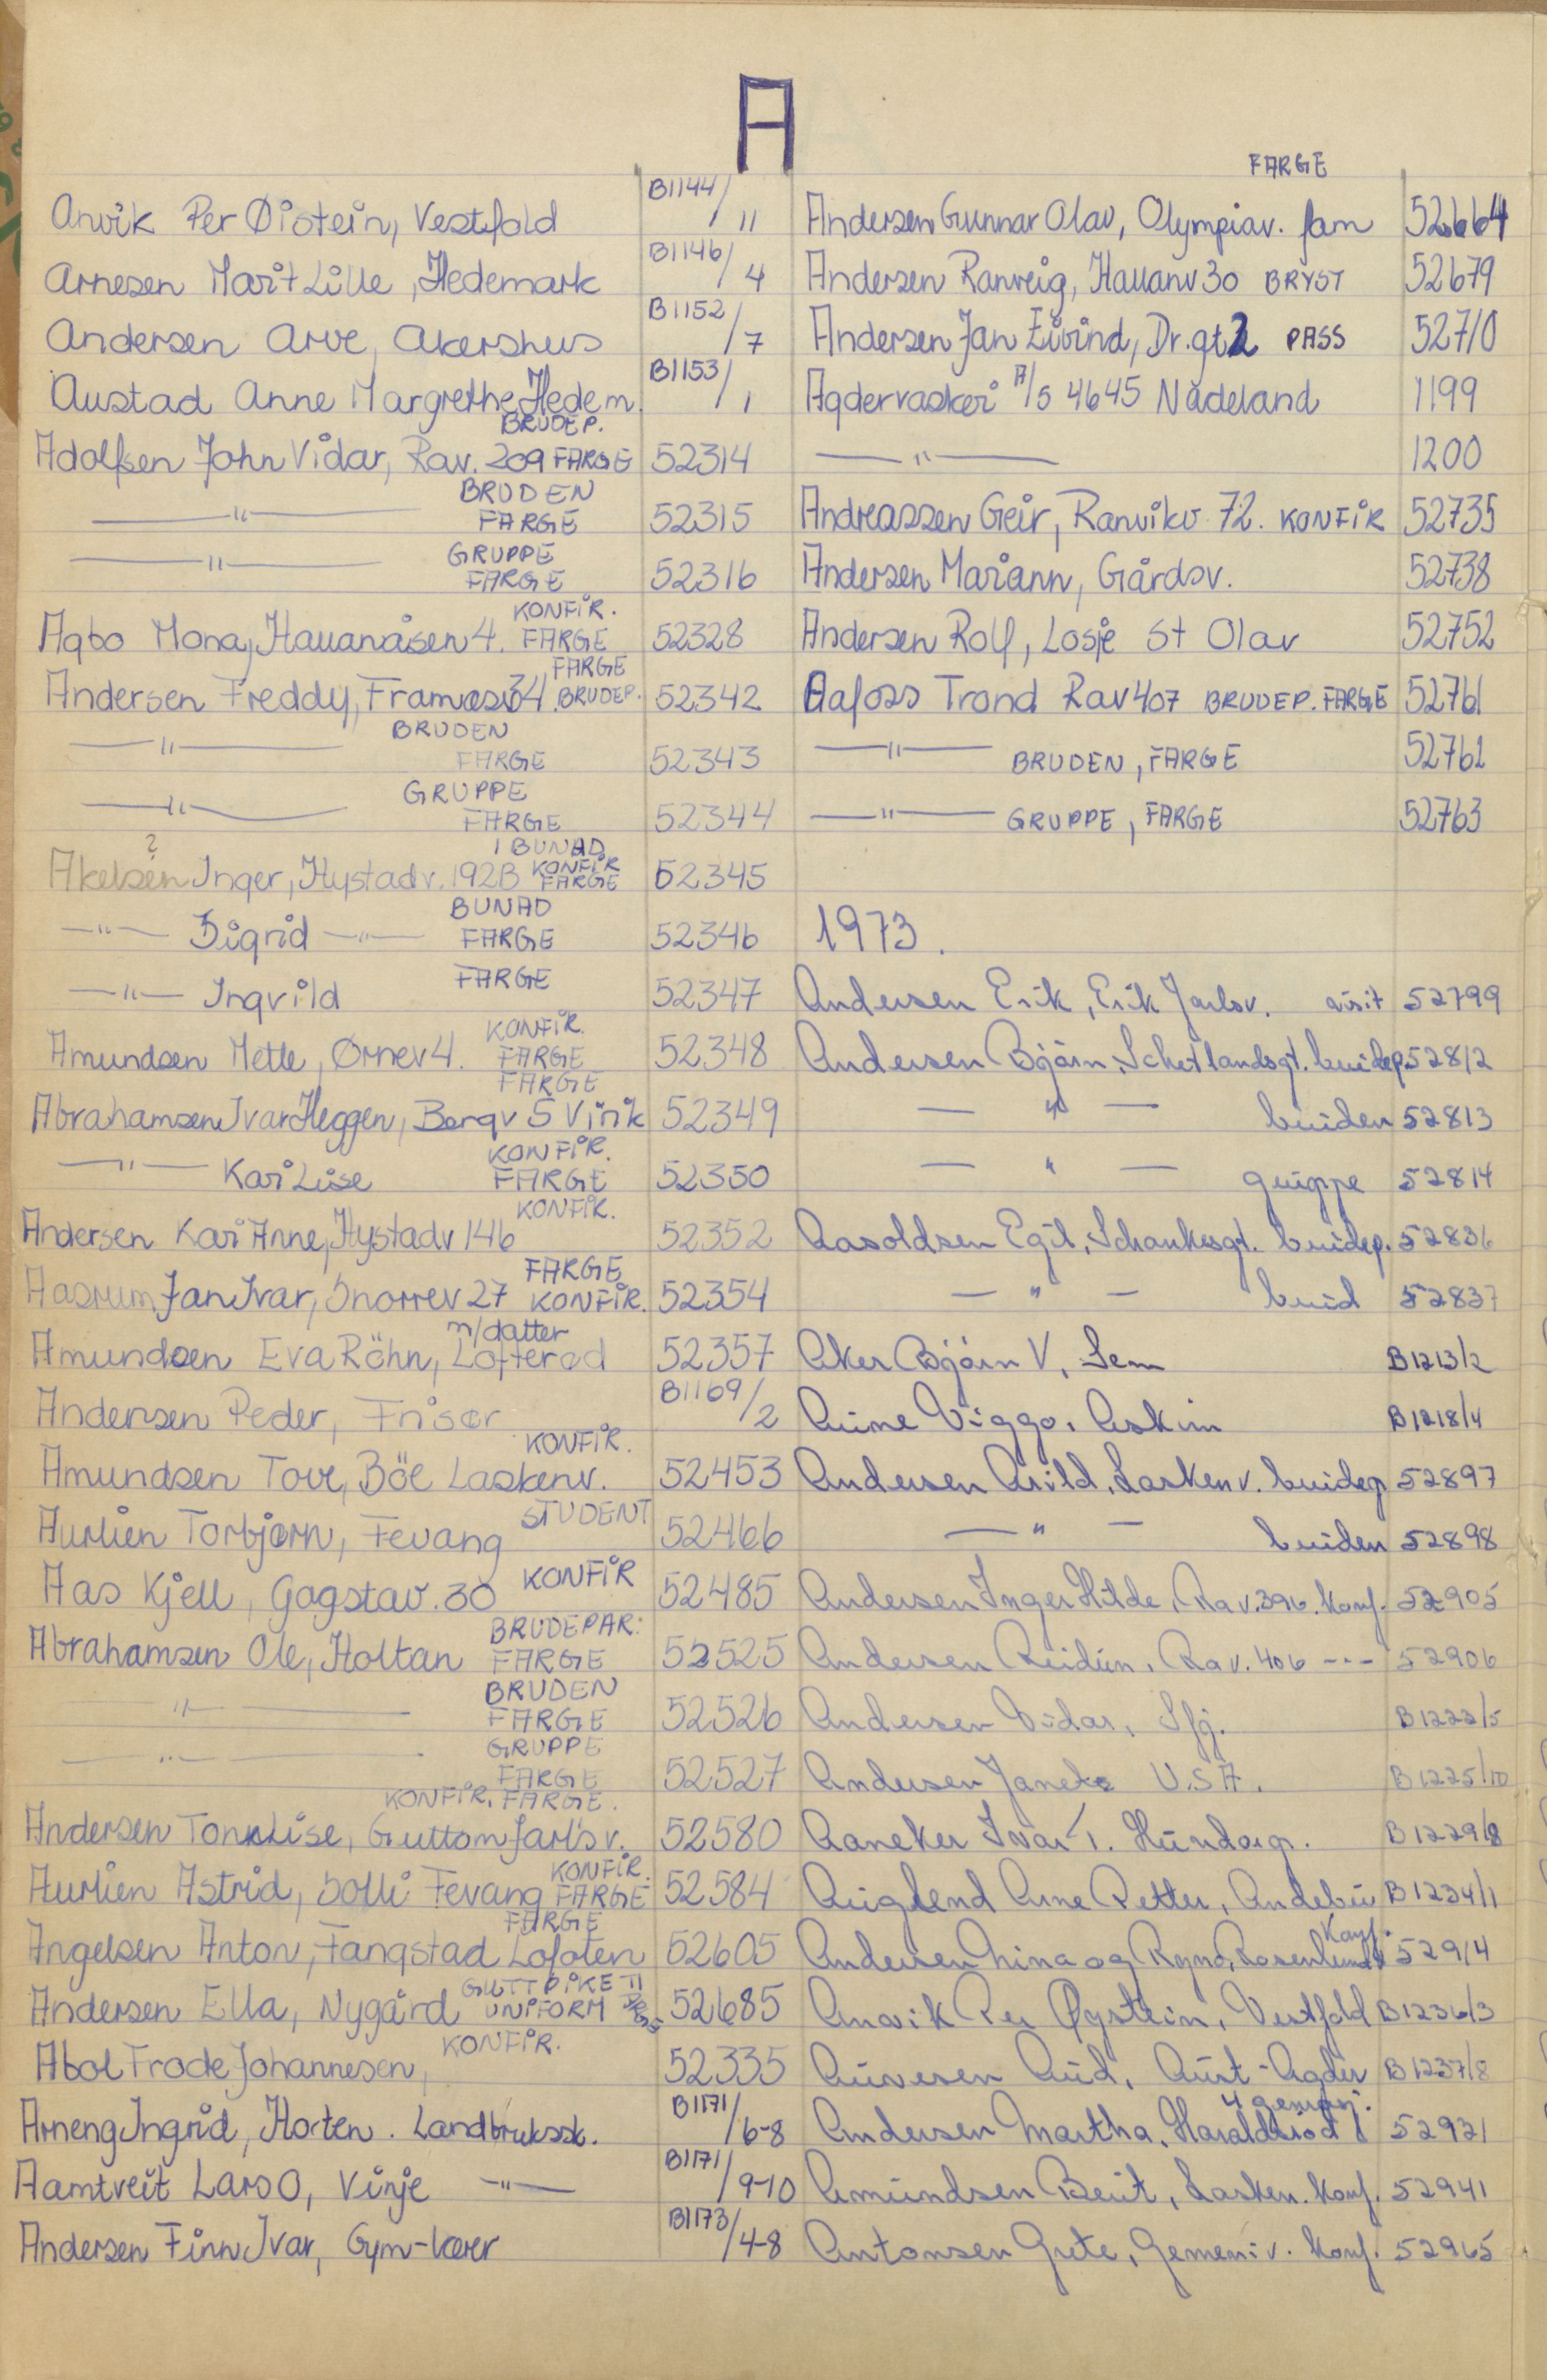 A
Anvik Per Øistein, Vestfold B1144/11
Arnesen Marit Lille, Hedemark B1146/4
Andersen Arve, Akershus B1152/7
Austad Anne Margrethe, Hedem. B1153/1
BRUDEP.
Adolfsen John Vidar, Rav. 209 FARGE 52314
BRUDEN
—"— FARGE 52315
GRUPPE
—"— FARGE 52316
KONFIR.
Agbo Mona, Hauanåsen 4. FARGE 52328
FARGE
Andersen Freddy, Framnesv 34. BRUDEP. 52342
BRUDEN
—"— FARGE 52343
GRUPPE
—"— FARGE 52344
? I BUNAD
KONFIR
Akelsen Inger, Hystadv. 192B FARGE 52345
BUNAD
—"— Sigrid —"— FARGE 52346
—"— Ingvild FARGE 52347
KONFIR.
Amundsen Mette, Ørnev 4. FARGE 52348
FARGE
Abrahamsen Ivar Heggen, Bergv 5 Virik 52349
KONFIR.
—"— Kari Lise FARGE 52350
KONFIR.
Andersen Kari Anne, Hystadv 146 52352
FARGE
Aasrum Jan Ivar, Snorrev 27 KONFIR. 52354
m/datter
Amundsen Eva Röhn, Løfterød 52357
Andersen Peder, Frisør B1169/2
KONFIR.
Amundsen Tove, Böe Laskenv. 52453
STUDENT
Aurlien Torbjørn, Fevang 52466
Aas Kjell, Gogstav. 30 KONFIR 52485
BRUDEPAR:
Abrahamsen Ole, Holtan FARGE 52525
BRUDEN
—"— FARGE 52526
GRUPPE
—"— FARGE 52527
KONFIR. FARGE.
Andersen Tone Lise, Guttorm Jarls v. 52580
KONFIR.
Aurlien Astrid, Solli Fevang FARGE 52584
FARGE
Angelsen Anton, Fangstad Lofoten 52605
GUTT PIKE II
Andersen Ella, Nygård UNIFORM 52685
KONFIR.
Abol Frode Johannesen, 52335
Arneng Ingrid, Horten. Landbrukssk. B1171/6-8
Aamtveit Lars O, Vinje —"— B1171/9-10
Andersen Finn Ivar, Gym-lærer B1173/4-8
FARGE
Andersen Gunnar Olav, Olympiav. fam 52664
Andersen Ranveig, Hauanv 30 BRYST 52679
Andersen Jan Eivind, Dr. gt 2 PASS 52710
Agdervaskeri A/S 4645 Nodeland 1199
—"— 1200
Andreassen Geir, Ranvikv 72. KONFIR 52735
Andersen Mariann, Gårdsv. 52738
Andersen Rolf, Losje St Olav 52752
Aafoss Trond Rav 407 BRUDEP. FARGE 52761
—"— BRUDEN, FARGE 52762
—"— GRUPPE, FARGE 52763
1973.
Andersen Erik, Erik Jarlsv. visit 52799
Andersen Bjørn, Schetlandsgt. brudep. 52812
— " — bruden 52813
— " — gruppe 52814
Aasoldsen Egil, Schankesgt. brudep. 52836
— " — brud 52837
Aker Bjørn V, Sem B1213/2
Aune Viggo, Askim B1218/4
Andersen Arild, Laskenv. brudep 52897
— " — bruden 52898
Andersen Inger Hilde, Rav. 396. Konf. 52905
Andersen Reidun, Rav. 406 -"- 52906
Andersen Vidar, Sfj. B1222/5
Andersen Janeke U.S.A. B1225/10
Aaneker Ivar T. Hundorp. B1229/8
Auglend Arne Petter, Andebu B1234/1
Konf.
Andersen Nina og Rosenlundv 52914
Anvik Per Øystein, Vestfold B1236/3
Auvesen Aud, Aust-Agder B1237/8
4 generasj.
Andersen Martha, Haraldsrød 52931
Amundsen Berit, Lasken. Konf. 52941
Antonsen Grete, Gemeniv. Konf. 52965